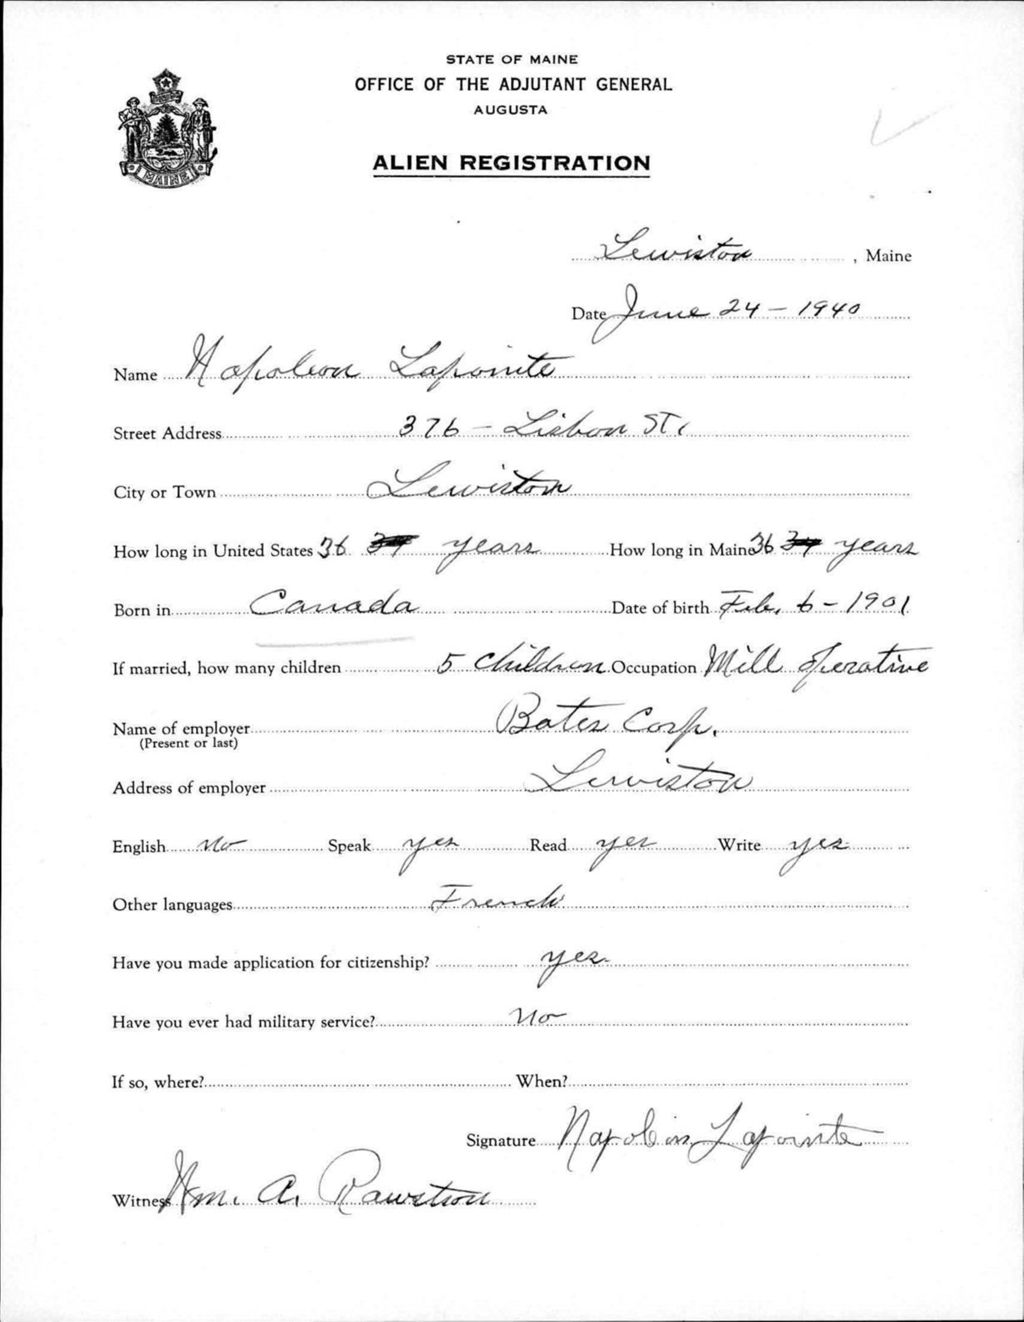 STATE OF MAINE
OFFICE OF THE ADJUTANT GENERAL
AUGUSTA
MAINE
ALIEN REGISTRATION
Lewiston, Maine
Date June 24 - 1940
Name Napoleon Lapointe
Street Address 376 - Lisbon ST.
City or Town Lewiston
How long in United States 36 years How long in Maine 36 years
Born in Canada Date of birth Feb. 6 - 1901
If married, how many children 5 children Occupation Mill Operative
Name of employer Bates Corp.
(Present or last)
Address of employer Lewiston
English No Speak yes Read yes Write yes
Other languages French
Have you made application for citizenship? yes
Have you ever had military service? No
If so, where? When?
Signature Napoleon Lapointe
Witness Wm. A. Rawstron